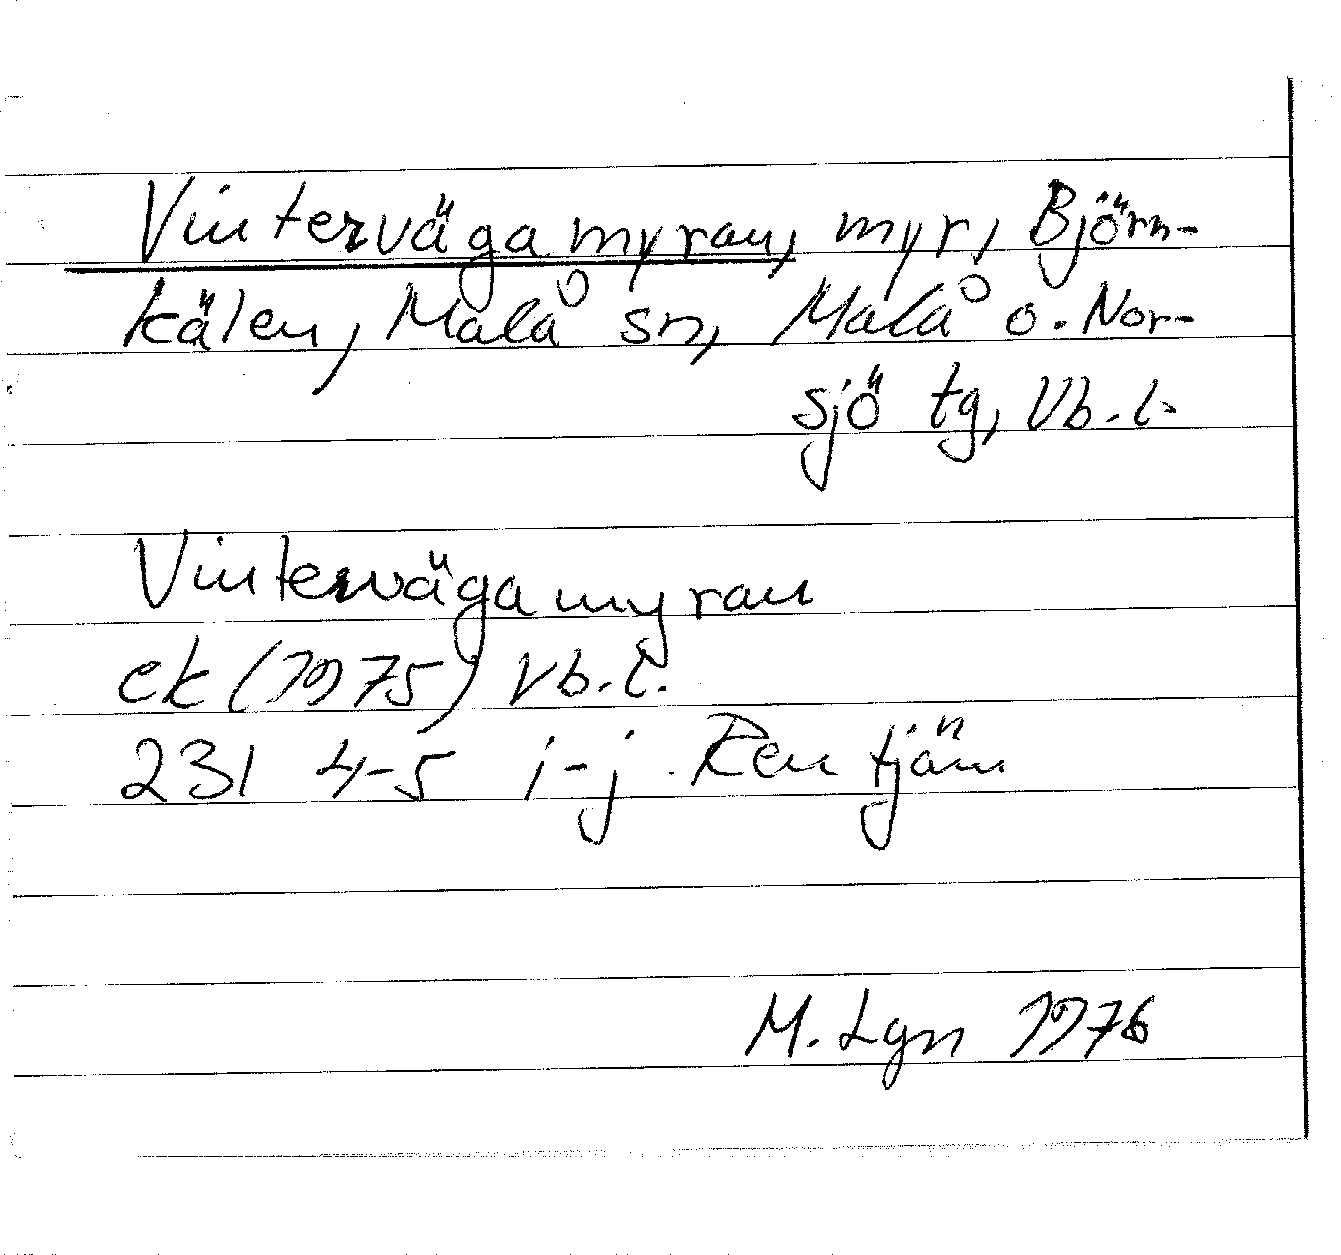 Vintervägamyran, myr, Björn-
kälen, Malå sn, Malå o. Nor-
sjö tg, Vb. l.
Vintervägamyran
ek (1975) Vb. l.
231 4-5 i-j Rentjärn
M. Lgn 1976